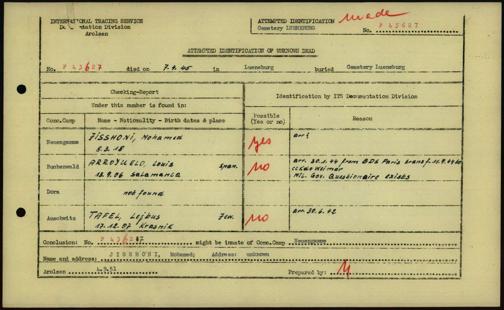 INTERNATIONAL TRACING SERVICE
Documentation Division
Arolsen
ATTEMPTED IDENTIFICATION made
Cemetery LUENEBURG
No. F 43627
ATTEMPTED IDENTIFICATION OF UNKNOWN DEAD
No. F 43627 died on 7.4.45 in Lueneburg buried Cemetery Lueneburg
Checking-Report
Under this number is found in:
Identification by ITS Documentation Division
Conc.Camp Name - Nationality - Birth dates & place
Possible
(Yes or no)
Reason
Neuengamme
JISSHONI, Mohamed
yes
Buchenwald
ARROYUELO, Louis Span.
12.9.06 Salamanca
no
arr. 30.1.44 from BDS Paris transf.
Mil. Gov. Questionaire exists
Dora
not found
Auschwitz
TAFEL, Lejbus Jew.
17.12.07 Krasnik
no
arr. 30.6.42
Conclusion: No. might be inmate of Conc.Camp Neuengamme
Name and address: JISSHONI, Mohamed; Address: unknown
Arolsen 4.9.51 Prepared by: